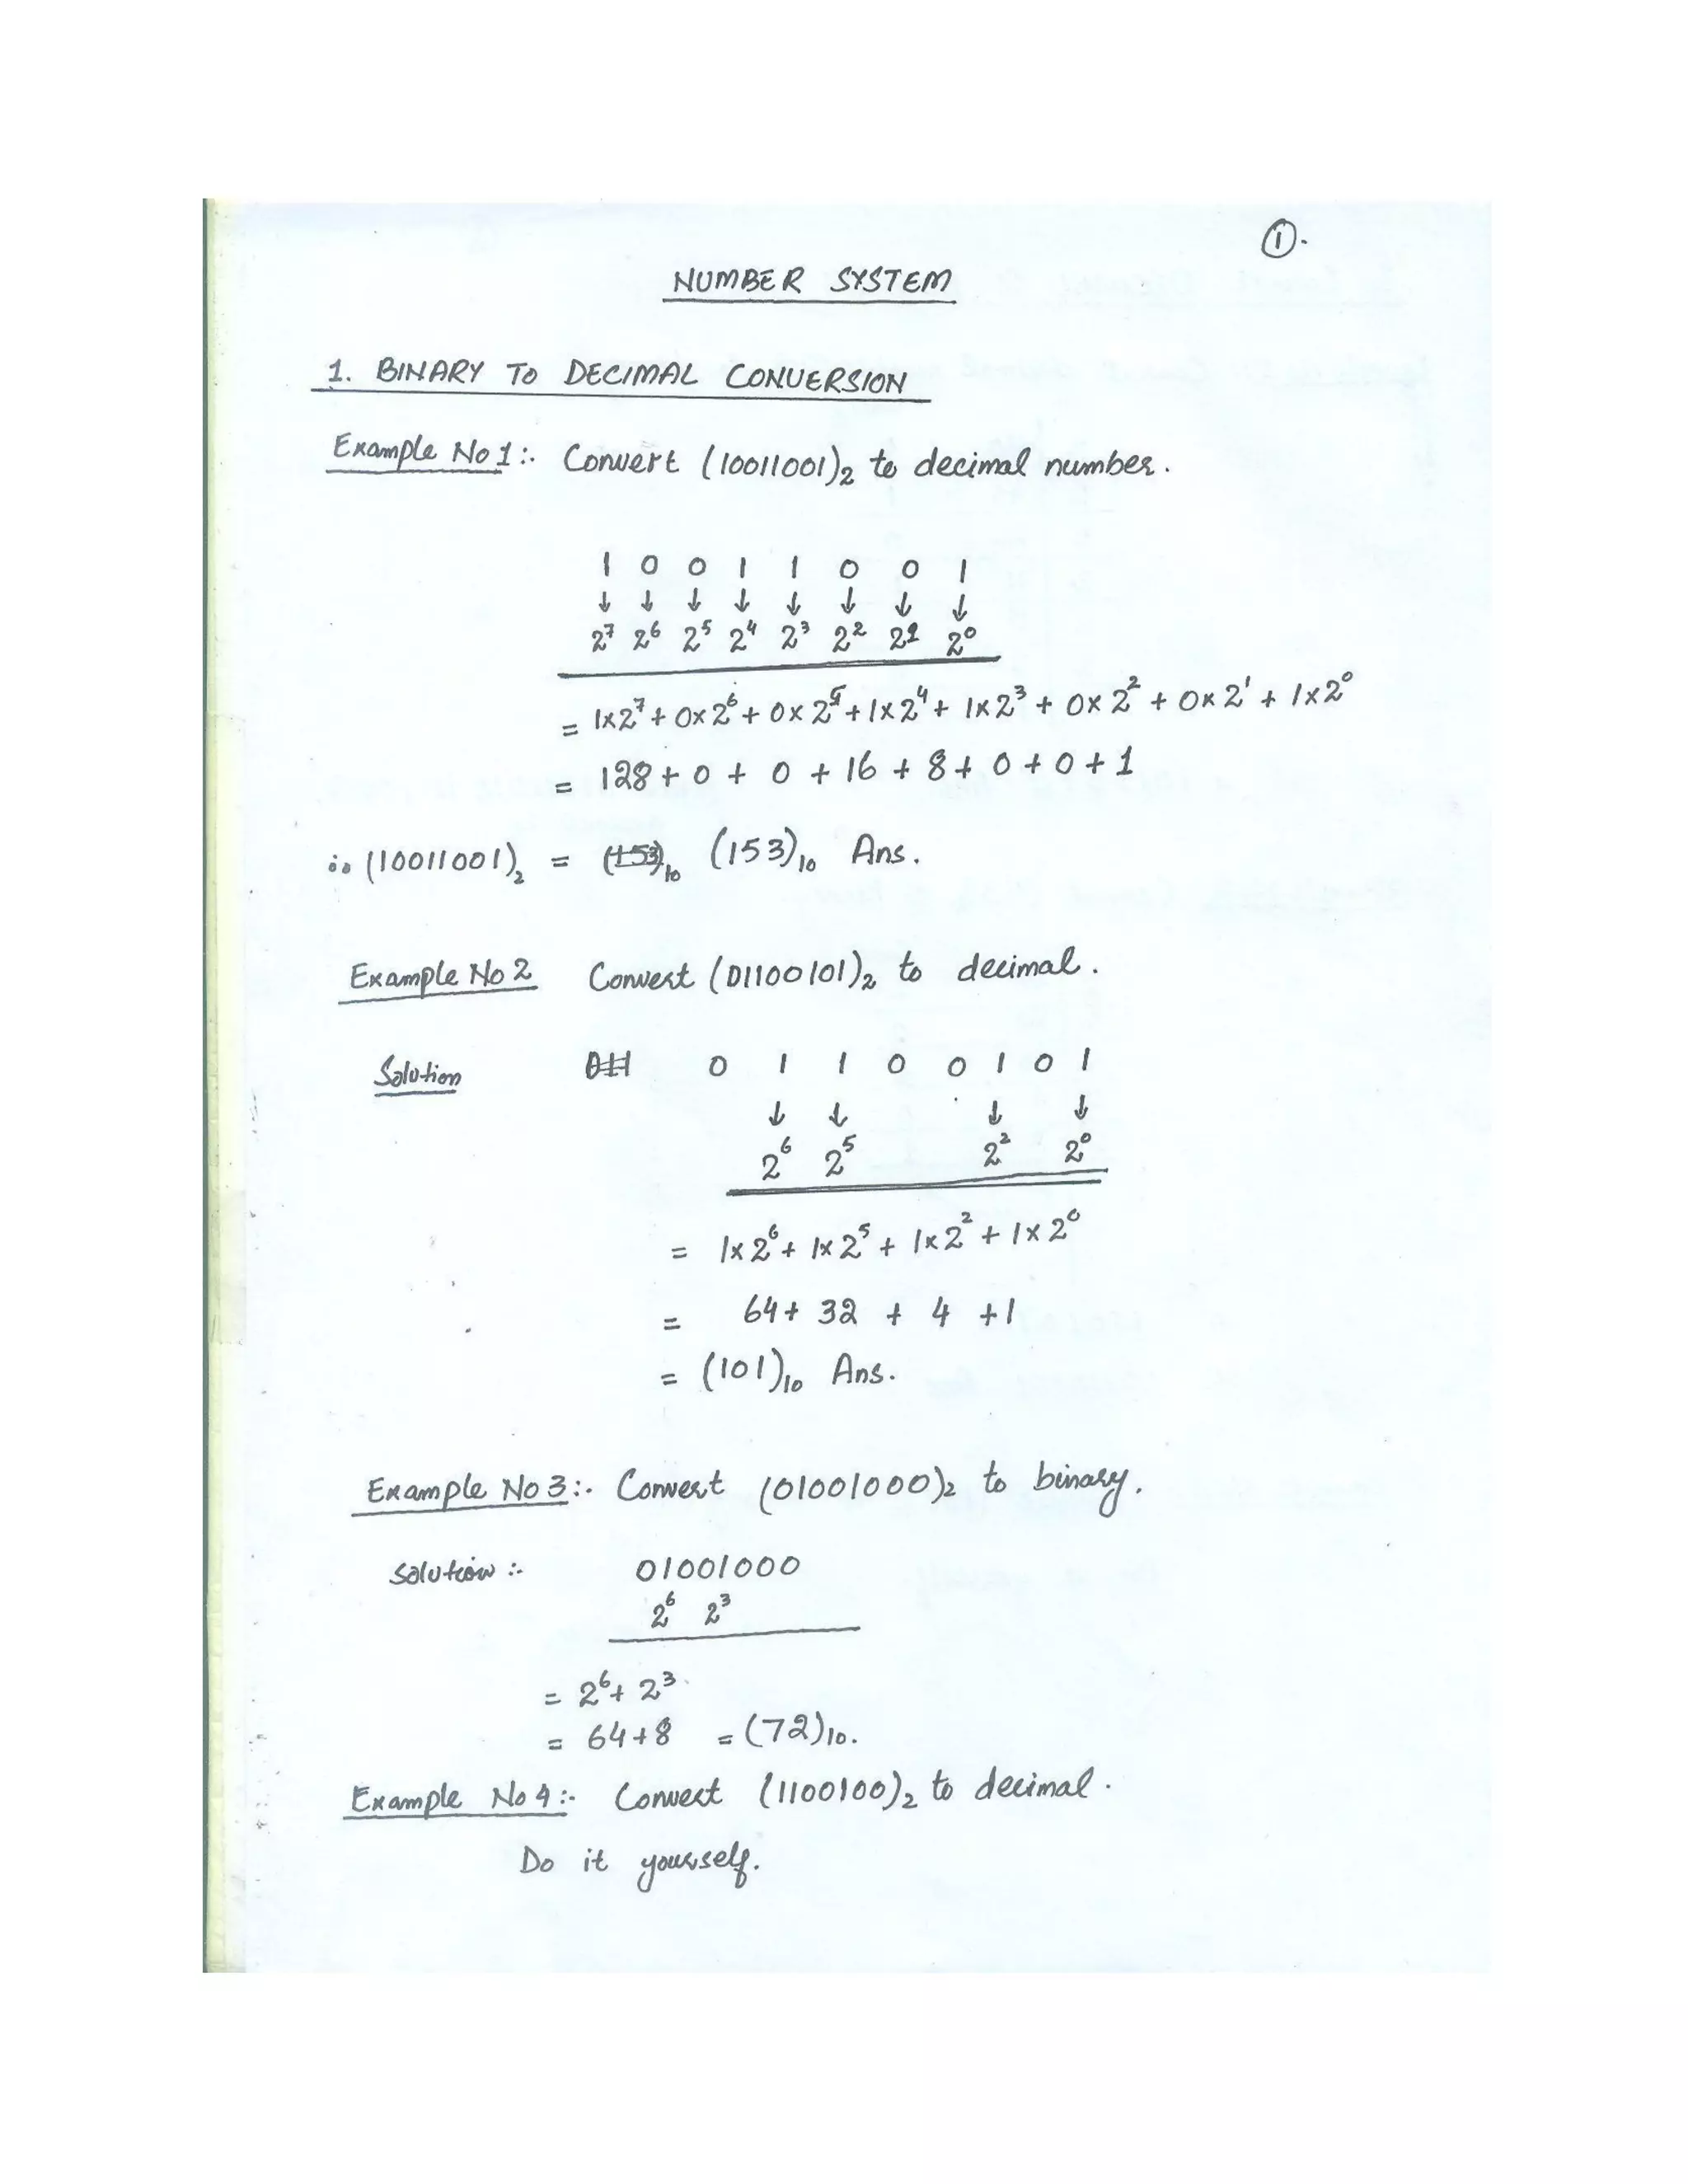 ①.
NUMBER SYSTEM
1. BINARY TO DECIMAL CONVERSION
Example No 1:. Convert (10011001)₂ to decimal number.
1 0 0 1 1 0 0 1
↓ ↓ ↓ ↓ ↓ ↓ ↓ ↓
2⁷ 2⁶ 2⁵ 2⁴ 2³ 2² 2¹ 2⁰
= 1x2⁷ + 0x2⁶ + 0x2⁵ + 1x2⁴ + 1x2³ + 0x2² + 0x2¹ + 1x2⁰
= 128 + 0 + 0 + 16 + 8 + 0 + 0 + 1
∴ (10011001)₂ = (153)₁₀ (153)₁₀ Ans.
Example No 2 Convert (01100101)₂ to decimal.
Solution 011 0 1 1 0 0 1 0 1
↓ ↓ ↓ ↓
2⁶ 2⁵ 2² 2⁰
= 1x2⁶ + 1x2⁵ + 1x2² + 1x2⁰
= 64 + 32 + 4 + 1
= (101)₁₀ Ans.
Example No 3:. Convert (01001000)₂ to binary.
Solution :. 01001000
2⁶ 2³
= 2⁶ + 2³
= 64+8 = (72)₁₀.
Example No 4:. Convert (1100100)₂ to decimal.
Do it yourself.